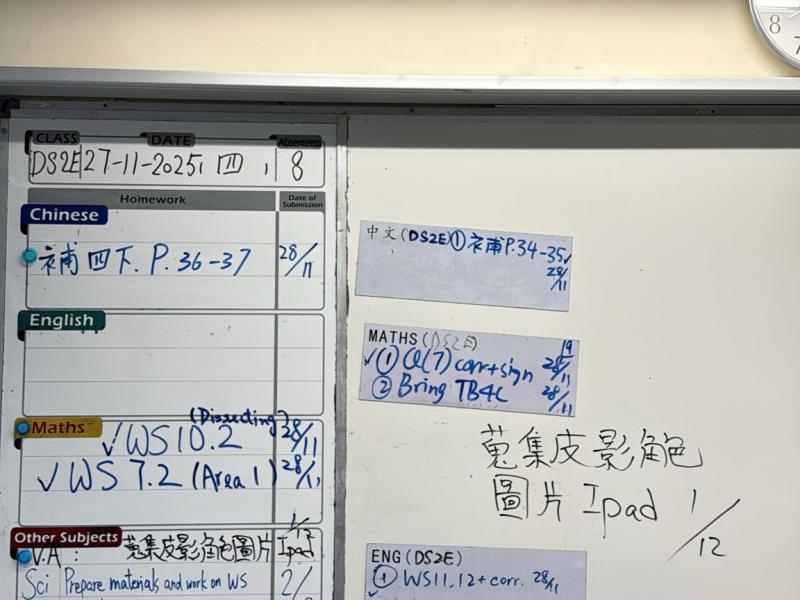 8
7
CLASS DATE Absentees
DS2E 27-11-2025, 四, 8
Homework Date of Submission
Chinese
補四下. P. 36-37 28/11
English
Maths
(Dissecting)
✓WS 10.2 28/11
✓WS 7.2 (Area 1) 28/11
Other Subjects 1/12
V.A : 蒐集皮影角色圖片 Ipad
Sci Prepare materials and work on WS 2/
中文(DS2E)① 補P.34-35✓
28/11
MATHS(DS2E) 19
✓① Q(7) corr+sign 28/11
② Bring TB4C 28/11
蒐集皮影角色
圖片 Ipad 1/12
ENG (DS2E)
① WS11, 12 + corr. 28/11